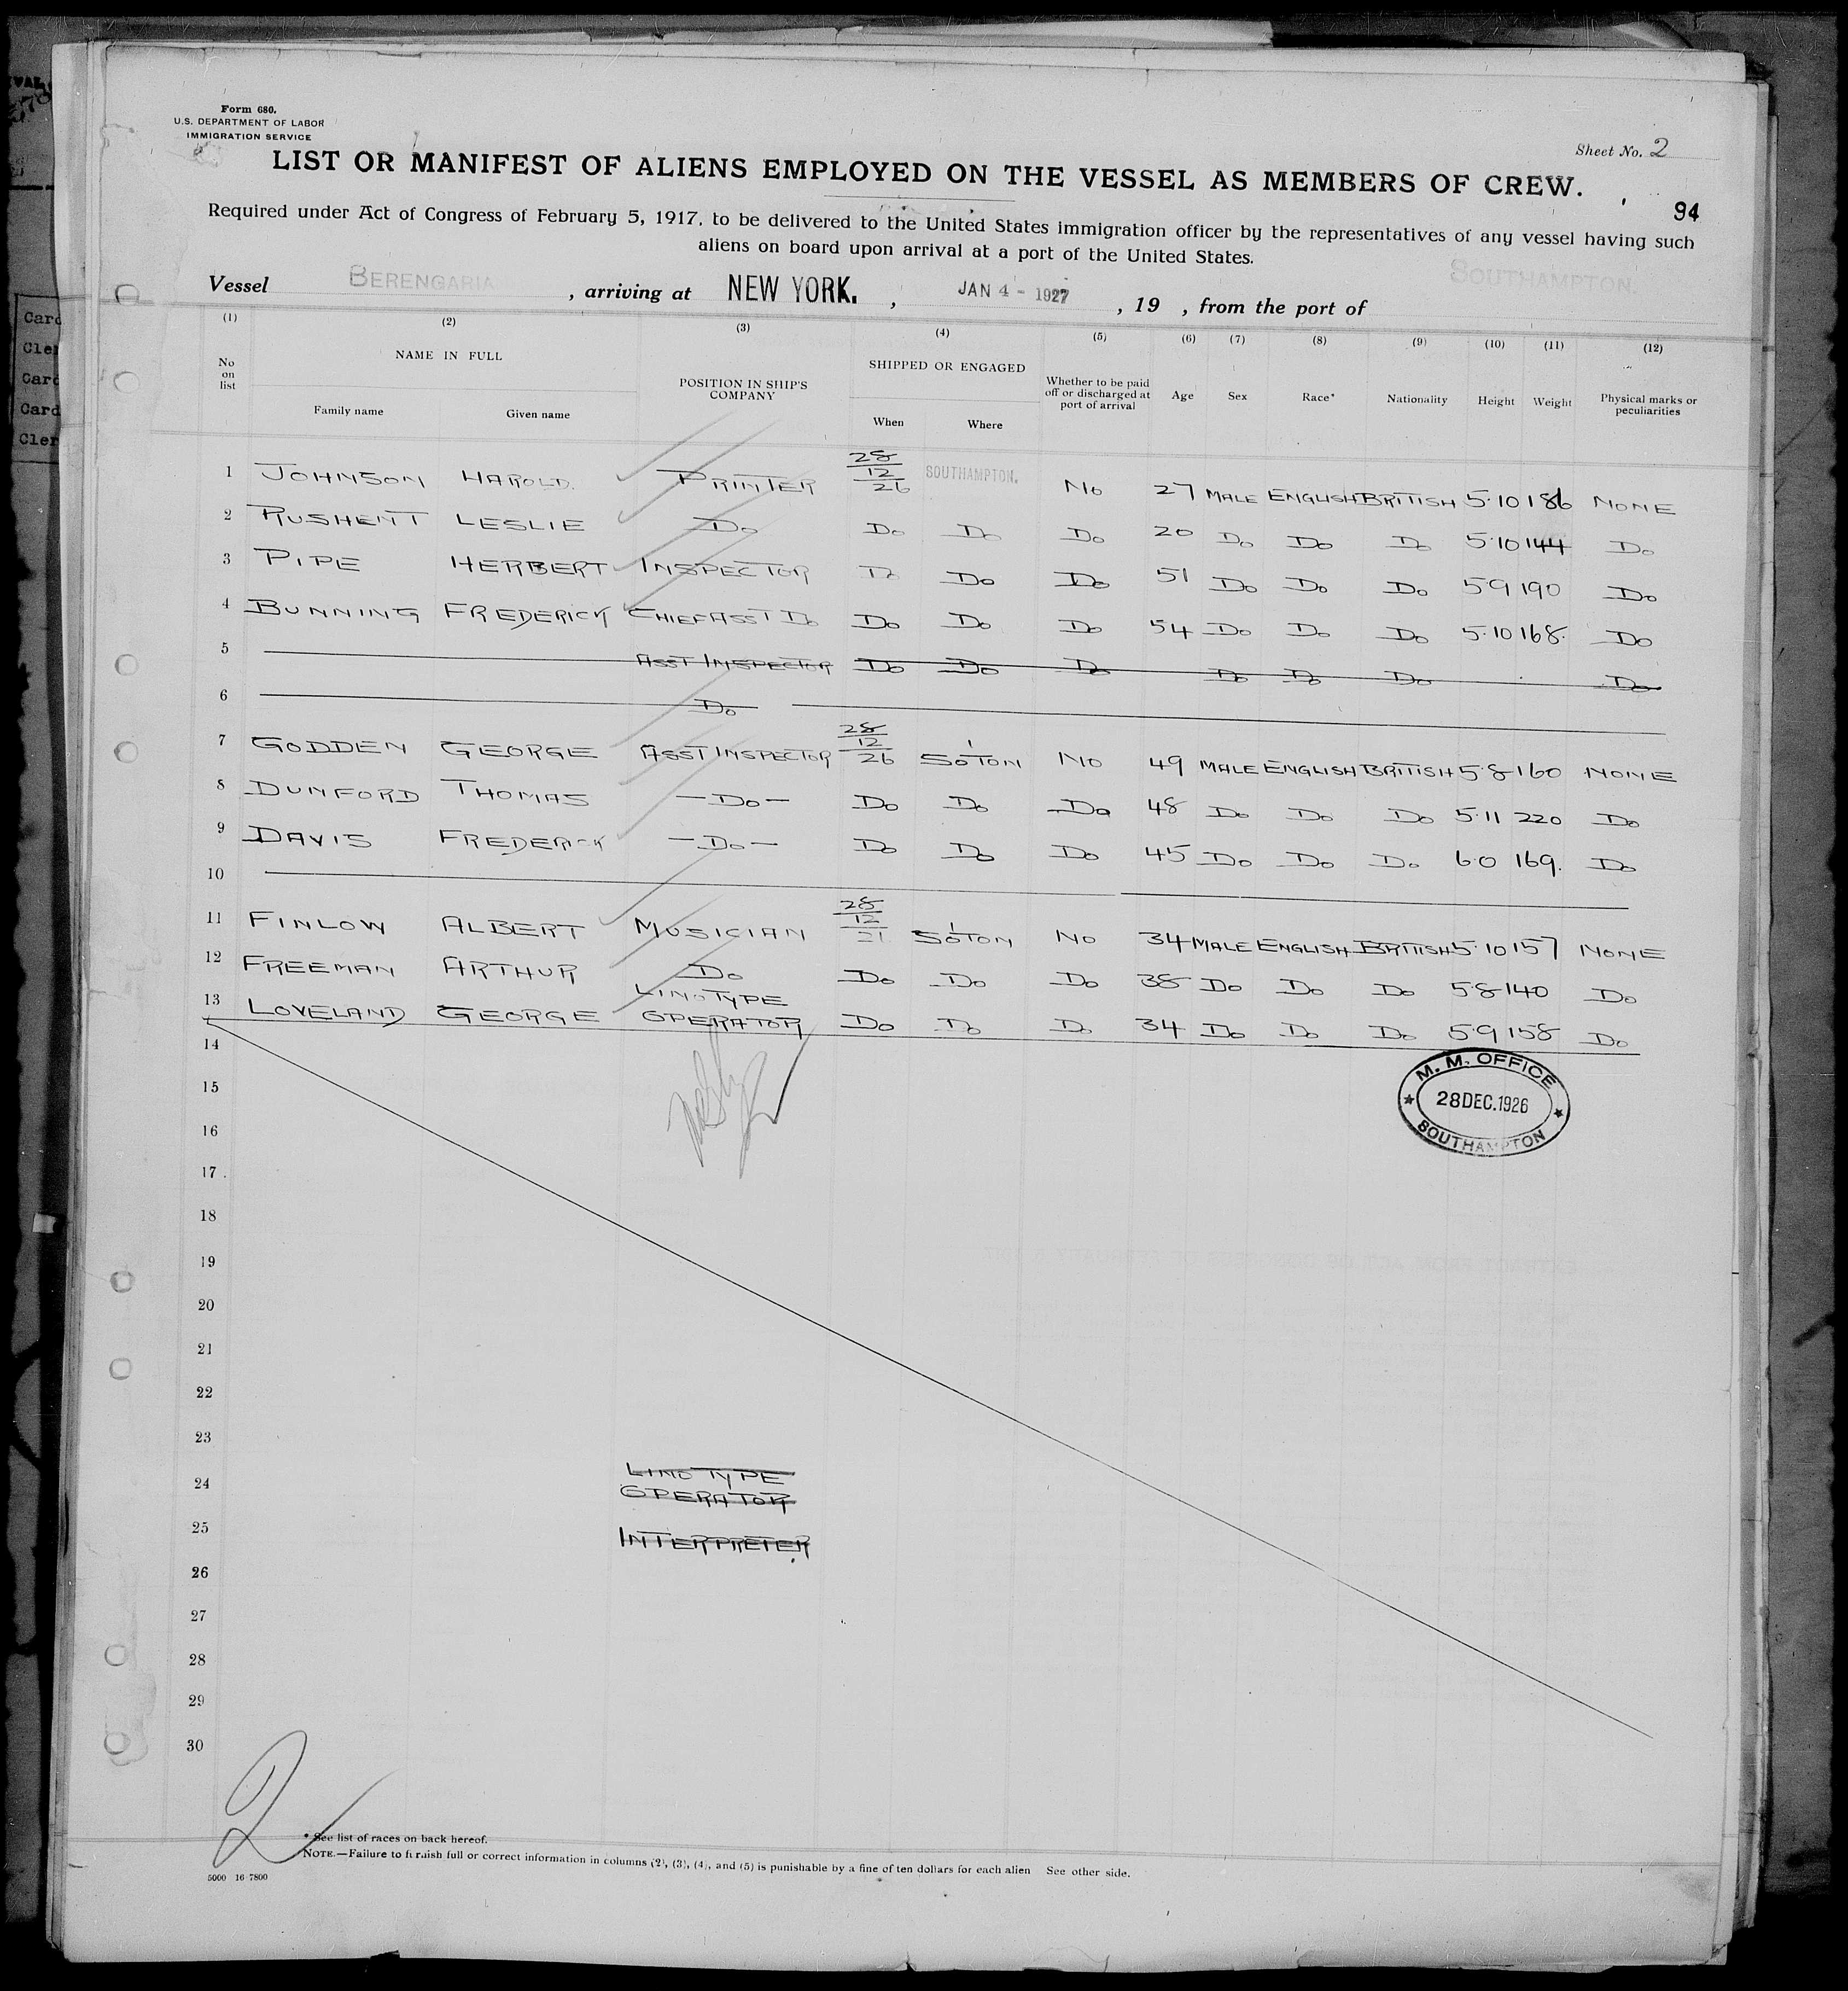 Form 680.
U.S. DEPARTMENT OF LABOR
IMMIGRATION SERVICE
Sheet No. 2
LIST OR MANIFEST OF ALIENS EMPLOYED ON THE VESSEL AS MEMBERS OF CREW.
94
Required under Act of Congress of February 5, 1917, to be delivered to the United States immigration officer by the representatives of any vessel having such
aliens on board upon arrival at a port of the United States.
Vessel BERENGARIA, arriving at NEW YORK., JAN 4 - 1927, 19 , from the port of SOUTHAMPTON.
(1) (2) (3) (4) (5) (6) (7) (8) (9) (10) (11) (12)
No on list NAME IN FULL Family name Given name POSITION IN SHIP'S COMPANY SHIPPED OR ENGAGED When Where Whether to be paid off or discharged at port of arrival Age Sex Race* Nationality Height Weight Physical marks or peculiarities
1 JOHNSON HAROLD. PRINTER 28/12/26 SOUTHAMPTON. NO 27 MALE ENGLISH BRITISH 5·10 186 NONE
2 RUSHENT LESLIE DO DO DO DO 20 DO DO DO 5·10 144 DO
3 PIPE HERBERT INSPECTOR DO DO DO 51 DO DO DO 5·9 190 DO
4 BUNNING FREDERICK CHIEF ASST DO DO DO DO 54 DO DO DO 5·10 168. DO
5 ASST INSPECTOR DO DO DO DO DO DO DO
6 DO
7 GODDEN GEORGE ASST INSPECTOR 28/12/26 SO'TON NO 49 MALE ENGLISH BRITISH 5·8 160 NONE
8 DUNFORD THOMAS -DO- DO DO DO 48 DO DO DO 5·11 220 DO
9 DAVIS FREDERICK -DO- DO DO DO 45 DO DO DO 6·0 169. DO
10
11 FINLOW ALBERT MUSICIAN 28/12/21 SO'TON NO 34 MALE ENGLISH BRITISH 5·10 157 NONE
12 FREEMAN ARTHUR DO DO DO DO 38 DO DO DO 5·8 140 DO
13 LOVELAND GEORGE LINOTYPE OPERATOR DO DO DO 34 DO DO DO 5·9 158 DO
14
M. M. OFFICE
28 DEC. 1926
SOUTHAMPTON
15
16
17
18
19
20
21
22
23
24 LINO TYPE OPERATOR
25 INTERPRETER
26
27
28
29
30
2
* See list of races on back hereof.
NOTE.—Failure to furnish full or correct information in columns (2), (3), (4), and (5) is punishable by a fine of ten dollars for each alien See other side.
5000 16-7800